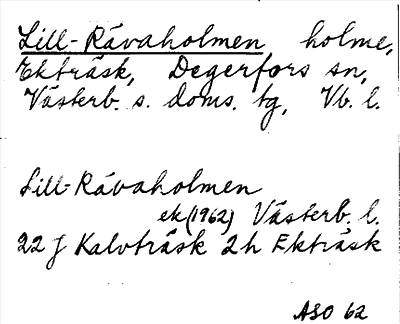 Lill-Rävaholmen holme,
Ekträsk, Degerfors sn,
Västerb. s. doms. tg, Vb. l.
Lill-Rävaholmen
ek (1962) Västerb. l.
22 J Kalvträsk 2h Ekträsk
ASO 62